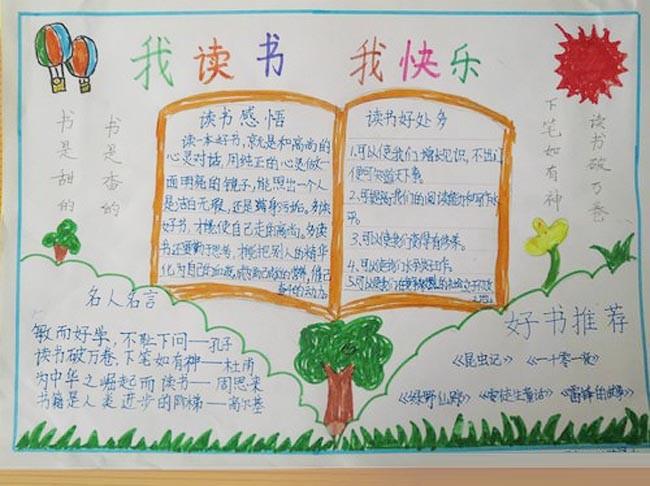 我读书 我快乐
书是香的
书是甜的
读书破万卷
下笔如有神
读书感悟
读一本好书，就是和高尚的
心灵对话，用纯正的心灵做一
面明亮的镜子，能照出一个人
是洁白无瑕，还是满身污垢。多读
好书，才能使自己走向高尚。多读
书还要勤于思考，才能把别人的精华
化为自己的血液，成为自己成长的营养，催己
奋进的动力。
读书好处多
1.可以使我们增长见识，不出门
便可知道天下事。
2.可提高我们的阅读能力和写作水
平。
3.可以使我们变得有修养。
4.可以使我们找到好工作。
5.可以使我们在
名人名言
敏而好学，不耻下问——孔子
读书破万卷，下笔如有神——杜甫
为中华之崛起而读书——周恩来
书籍是人类进步的阶梯——高尔基
好书推荐
《昆虫记》《一千零一夜》
《绿野仙踪》《安徒生童话》《雷锋的故事》